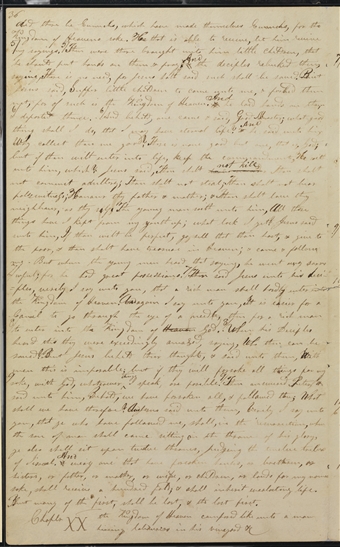 and there be Eunuchs, which have made themselves Eunuchs, for the
Kingdom of Heavens sake. He that is able to receive, let him receive
my sayings. Then were there brought unto him little children, that
he should put hands on them & pray. And the disciples rebuked them,
saying, There is no need, for Jesus hath said such shall be saved. But
Jesus said, Suffer little children to come unto me, & forbid them
not, for of such is the Kingdom of Heaven. And he laid hands on them
& departed thence. And behold, one came & said, Good Master, what good
thing shall I do, that I may have eternal life? And he said unto him,
Why callest thou me good? There is none good but one, that is, God;
but if thou wilt enter into life, keep the commandments. He saith
unto him, which? Jesus said, Thou shalt not kill. Thou shalt
not commit adultery; Thou shalt not steal; Thou shalt not bear
false witness; Honour thy father & mother; & thou shalt love thy
neighbour as thyself. The young man saith unto him, All these
things have I kept from my youth up; what lack I yet? Jesus said
unto him, If thou wilt be perfect, go sell that thou hast, & give to
the poor, & thou shalt have treasure in heaven; & come & follow
me. But when the young man heard that saying, he went away sorr-
owful; for he had great possessions. Then said Jesus unto his disci-
ples, verily I say unto you, that a rich man shall hardly enter into
the Kingdom of Heaven. And again I say unto you, It is easier for a
Camel to go through the eye of a needle, than for a rich man
to enter into the Kingdom of God. When his disciples
heard this they were exceedingly amazed, saying, Who then can be
saved? But Jesus beheld their thoughts, & said unto them, With
men this is impossible; but if they will forsake all things for my
sake, with God, whatsoever I speak, is possible. Then answered Peter, &
said unto him, behold, we have forsaken all, & followed thee; What
shall we have therefore? And Jesus said unto them, Verily I say unto
you, that ye who have followed me, shall, in the resurrection, when
the son of man shall come sitting on the throne of his glory,
ye also shall sit upon twelve thrones, judging the twelve tribes
of Israel. And every one that have forsaken houses, or brethren, or
sisters, or father, or mother, or wife, or children, or lands for my name
sake, shall receive a hundred fold, & shall inherit everlasting life.
But many of the first, shall be last, & the last first.
Chapter XX
the Kingdom of Heaven
like unto a man
in his vineyard &